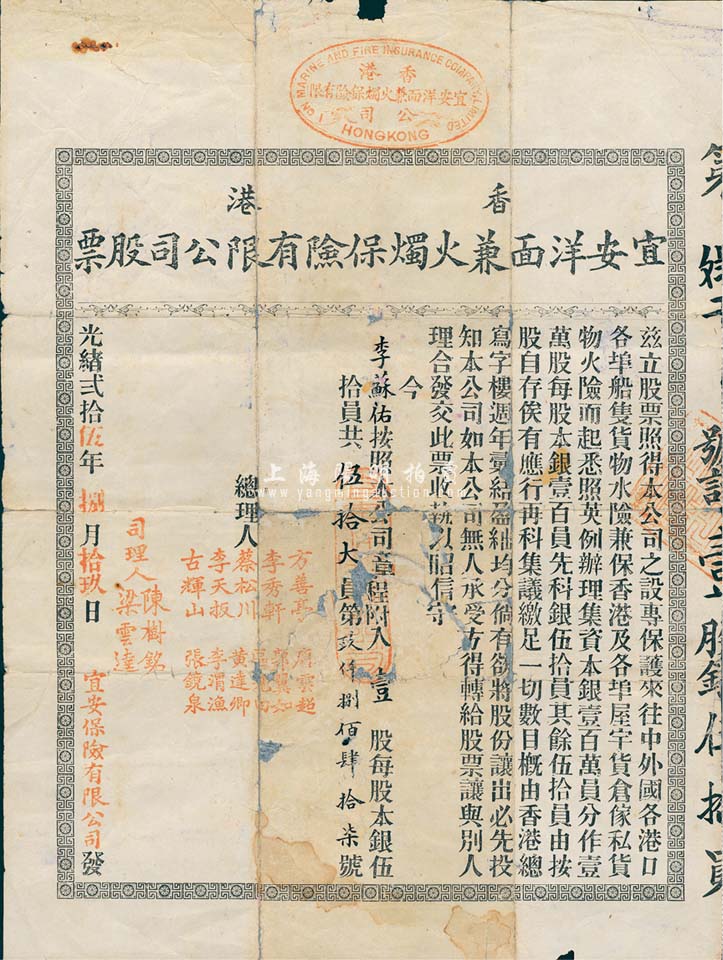 I ON MARINE AND FIRE INSURANCE COMPANY LIMITED
港香
宜安洋面兼火燭保險有限
公司
HONGKONG
港香
宜安洋面兼火燭保險有限公司股票
茲立股票照得本公司之設專保護來往中外國各港口
各埠船隻貨物水險兼保香港及各埠屋宇貨倉傢私貨
物火險而起悉照英例辦理集資本銀壹百萬員分作壹
萬股每股本銀壹百員先科銀伍拾員其餘伍拾員由按
股自存俟有應行再科集議繳足一切數目概由香港總
寫字樓週年彙結盈絀均分倘有欲將股份讓出必先投
知本公司如本公司無人承受方得轉給股票讓與別人
理合發交此票收執以昭信守
今
李蘇佑按照本公司章程附入壹股每股本銀伍
拾員共伍拾大員第 仟捌佰肆拾柒號
總理人
方善亭 唐雲超
李秀軒
蔡松川 黃達卿
李天扳 李渭漁
古輝山 張鏡泉
司理人
陳樹銘
梁雲逵
光緒弍拾伍年捌月拾玖日 宜安保險有限公司發
上海陽明拍賣
www.yangmingauction.com